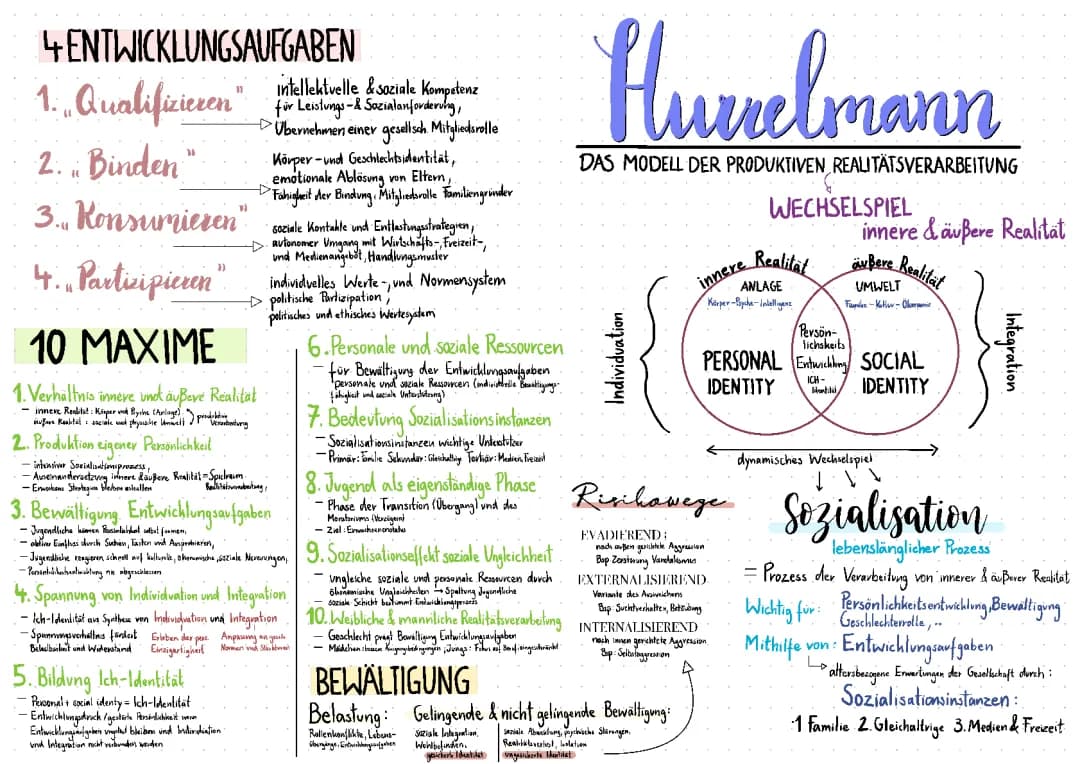 4 ENTWICKLUNGSAUFGABEN
1. „Qualifizieren"
intellektuelle & soziale Kompetenz
für Leistungs-& Sozialanforderung,
Übernehmen einer gesellsch. Mitgliedsrolle
2. „Binden"
Körper-und Geschlechtsidentität,
emotionale Ablösung von Eltern,
Fähigkeit der Bindung, Mitgliedsrolle Familiengründer
3. „Konsumieren"
soziale Kontakte und Entlastungsstrategien,
autonomer Umgang mit Wirtschafts-, Freizeit-,
und Medienangebot, Handlungsmuster
4. „Partizipieren"
individuelles Werte-, und Normensystem
politische Partizipation,
politisches und ethisches Wertesystem
10 MAXIME
1. Verhältnis innere und äußere Realität
- innere Realität: Körper und Psyche (Anlage)
äußere Realität: soziale und physische Umwelt
produktive
Verarbeitung
2. Produktion eigener Persönlichkeit
- intensiver Sozialisationsprozess,
- Auseinandersetzung innere & äußere Realität = Spielraum
Realitätsverarbeitung,
- Erworbene Strategien bleiben
3. Bewältigung Entwicklungsaufgaben
- Jugendliche können Persönlichkeit selbst formen,
- aktiver Einfluss durch Suchen, Tasten und Ausprobieren,
- Jugendliche reagieren schnell auf kulturelle, ökonomische, soziale Neuerungen,
- Persönlichkeitsentwicklung nie abgeschlossen
4. Spannung von Individuation und Integration
- Ich-Identität aus Synthese von Individuation und Integration
- Spannungsverhältnis fördert
Belastbarkeit und Widerstand
Erleben der pers.
Einzigartigkeit
Anpassung an gesell.
Normen und Strukturen
5. Bildung Ich-Identität
- Personal + social identy = Ich-Identität
- Entwicklungsdruck / gestörte Persönlichkeit wenn
Entwicklungsaufgaben unerfüllt bleiben und Individuation
und Integration nicht verbunden werden
6. Personale und soziale Ressourcen
- für Bewältigung der Entwicklungsaufgaben
personale und soziale Ressourcen (individuelle Bewältigungs-
fähigkeit und soziale Unterstützung)
7. Bedeutung Sozialisationsinstanzen
- Sozialisationsinstanzen wichtige Unterstützer
- Primär: Familie Sekundär: Gleichaltrig Tertiär: Medien, Freizeit
8. Jugend als eigenständige Phase
- Phase der Transition (Übergang) und des
Moratoriums (Verzögern)
- Ziel: Erwachsenenstatus
9. Sozialisationseffekt soziale Ungleichheit
- ungleiche soziale und personale Ressourcen durch
ökonomische Ungleichheiten → Spaltung Jugendliche
- soziale Schicht bestimmt Entwicklungsprozess
10. Weibliche & männliche Realitätsverarbeitung
- Geschlecht prägt Bewältigung Entwicklungsaufgaben
- Mädchen: Jungs: Fokus auf Beruf eingeschränkt
BEWÄLTIGUNG
Belastung:
Rollenkonflikte, Lebens-
übergänge, Entwicklungsaufgaben
Gelingende & nicht gelingende Bewältigung:
Soziale Integration,
Wohlbefinden,
gesicherte Identität
soziale Abweichung, psychische Störungen,
Realitätsverlust, Isolation
ungesicherte Identität
Hurrelmann
DAS MODELL DER PRODUKTIVEN REALITÄTSVERARBEITUNG
WECHSELSPIEL
innere & äußere Realität
innere Realität
äußere Realität
ANLAGE
Körper-Psyche-Intelligenz
UMWELT
Familie-Kultur-Ökonomie
Individuation
PERSONAL
IDENTITY
Persön-
lichkeits
Entwicklung
ICH-
Identität
SOCIAL
IDENTITY
Integration
dynamisches Wechselspiel
Risikowege
EVADIEREND:
nach außen gerichtete Aggression
Bsp Zerstörung Vandalismus
EXTERNALISIEREND
Variante des Ausweichens
Bsp: Suchtverhalten, Betäubung
INTERNALISIEREND
nach innen gerichtete Aggression
Bsp: Selbstaggression
Sozialisation
lebenslänglicher Prozess
= Prozess der Verarbeitung von innerer & äußerer Realität
Wichtig für: Persönlichkeitsentwicklung, Bewältigung
Geschlechterrolle,..
Mithilfe von: Entwicklungsaufgaben
altersbezogene Erwartungen der Gesellschaft durch:
Sozialisationsinstanzen:
1 Familie 2. Gleichaltrige 3. Medien & Freizeit